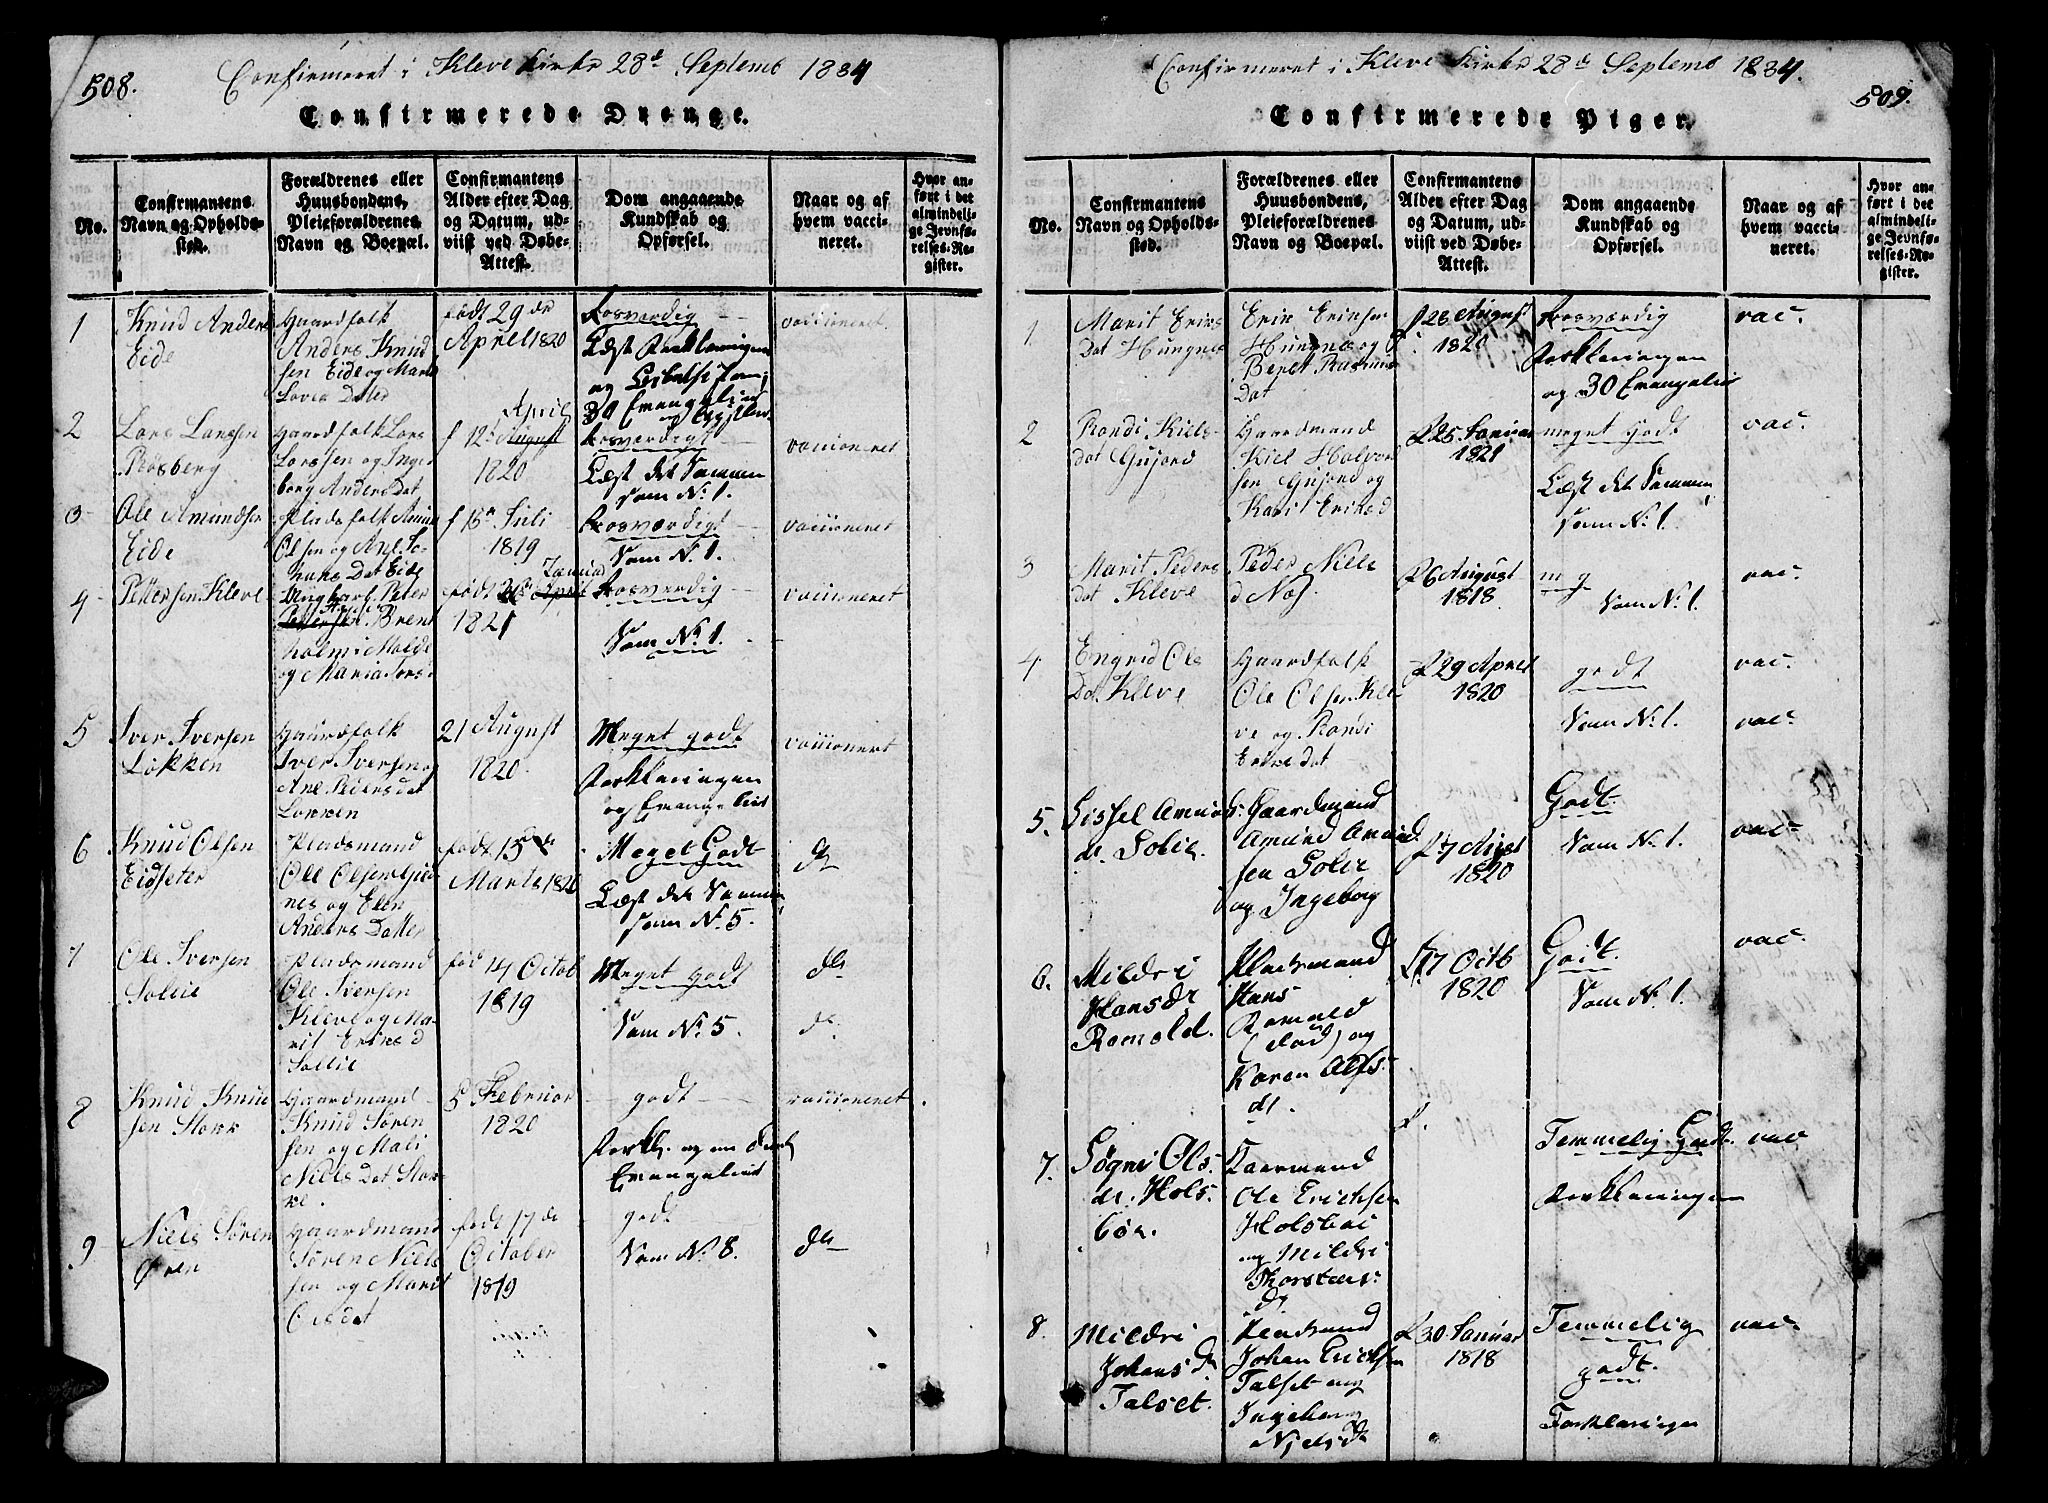 508.
Confirmeret i Kleve Kirke 28de Septemb 1834
Confirmerede Drenge.
No.
Confirmantens
Navn og Opholds-
sted.
Forældrenes eller
Huusbondens,
Pleieforældrenes
Navn og Boepæl.
Confirmantens
Alder efter Dag
og Datum, ud-
viist ved Døbe-
Attest.
Dom angaaende
Kundskab og
Opførsel.
Naar og af
hvem vacci-
neret.
Hvor an-
ført i det
almindeli-
ge Jevnfø-
relses-Re-
gister.
1
Knud Anders
Eide
Gaardfolk
Anders Knud
sen Eide og Marit
født 29de
April 1820
Rosværdig
Læst Forklaringen
30 Evangelier
vaccioneret
2
Lars Larssen
Røsberg
Gaardfolk Lars
Larssen og Inge
borg Anders Dat
April
f 12t August
1820
Rosværdigt
Læst det Samme
som No 1.
vaccioneret
3
Ole Amundsen
Eide
Pladsfolk Amun
Olsen og Ane Jo-
hans Dat Eide
f 15de Juli
1819
Rosværdigt
Som No 1.
vaccioneret
4
Pettersen Kleve
Ungkarl Peter
Brent
holm i Molde
og Maria Ivers
Januar
født April
1821
Rosværdig
Som No 1.
vaccioneret
5
Iver Iversen
Løkken
Gaardfolk
Iver Iversen og
Ane Pedersdat
Løkken
21 August
1820
Meget godt
Forklaringen
og Evangelier
vaccionert
6
Knud Olsen
Eidseter
Pladsmand
Ole Olsen
nes og Elen
Anders Datter
født 15de
Marts 1820
Meget Godt
Læst det Samme
som No 5.
do
7
Ole Iversen
Solie
Pladsmand
Ole Iversen
Kleve og Ma-
rit Eriks d
Sollie
fød 14 Octob
1819
Meget godt
Som No 5.
do
do
8
Knud Knud
sen Stokk
Gaardmand
Knud Søren
sen og Mali
Niels Dat Stok
ke.
5 Februar
1820
godt
Forkl. og en Deel
Evangelier
vaccioneret
9
Niels Søren
Øren
Gaardmand
Søren Niels
sen og Marit
Olsdat
født 17de
October
1819
godt
Som No 8.
do
Confirmeret i Kleve Kirke 28de Septemb 1834.
509.
Confirmerede Piger.
No.
Confirmantens
Navn og Opholds-
sted.
Forældrenes eller
Huusbondens,
Pleieforældrenes
Navn og Boepæl.
Confirmantens
Alder efter Dag
og Datum, ud-
viist ved Døbe-
Attest.
Dom angaaende
Kundskab og
Opførsel.
Naar og af
hvem vacci-
neret.
Hvor an-
ført i det
almindeli-
ge Jevnfø-
relses-Re-
gister.
1
Marit Eriks
Dat Hungnes
Erik Eriksen
Hungnes og
Beret Rasmus
Dat
f 28 August
1820
Rosværdig
Forklaringen
og 30 Evangelier
vac.
2
Randi Kiels-
dat Gujord
Gaardmand
Kiel Halvor
sen Gujord og
Kari Eriks d
f 25 Januar
1821
meget Godt
Læst det Samme
som No 1.
vac.
3
Marit Peders
dat Kleve
Peder Niels
d Nos.
f 6 August
1818
mg
Som No 1.
vac.
4
Engrid Ols
Dat Kleve
Gaardfolk
Ole Olsen Kle-
ve og Randi
Eriks dat
f 29 April
1820
godt
Som No 1.
vac.
vac.
5.
Sissel Amunds.
dr. Solie.
Gaardmand
Amund Amund
sen Solie
og Ingeborg
1820
Godt.
Som No 1.
vac.
6.
Mildri
Hansdr
Romold.
Pladsmand
Hans
Romuld
(død) og
Karen Olfs.
dr.
f 7 Octb
1820
Godt.
Som No 1.
vac.
7.
Søgni Ols.
dr. Hols.
bør.
Gaarmand
Ole Erichsen
Holsbøi
og Mildri
Thorsteins.
dr
f.
Temmelig Godt.
Forklaringen
vac
8.
Mildri
Johans dr
Talset.
Pladsmand
Johan Erichsen
Talset og
Ingeborg
Nielsdr
f 30 Januar
1818
Temmelig
godt.
Forklaringen
vac.